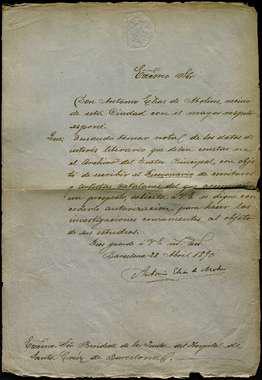 Excmo Sor
Don Antonio Elias de Molins, vecino
de esta Ciudad, con el mayor respeto
expone:
Que; Deseando tomar nota de los datos de
interés literario que deben existir en
el Archivo del Teatro Principal, con obje
to de escribir el Diccionario de escritores
y artistas catalanes del
un proyecto, solicita á V.E. se digne con
cederle autorizacion, para hacer las
investigaciones convenientes al objeto
de sus estudios.
Dios guarde á V.E. ms. as.
Barcelona 28 Abril 18
Antonio Elias de Molins
Excmo Sor Presidente de la Junta del Hospital de
Santa Cruz de Barcelona.